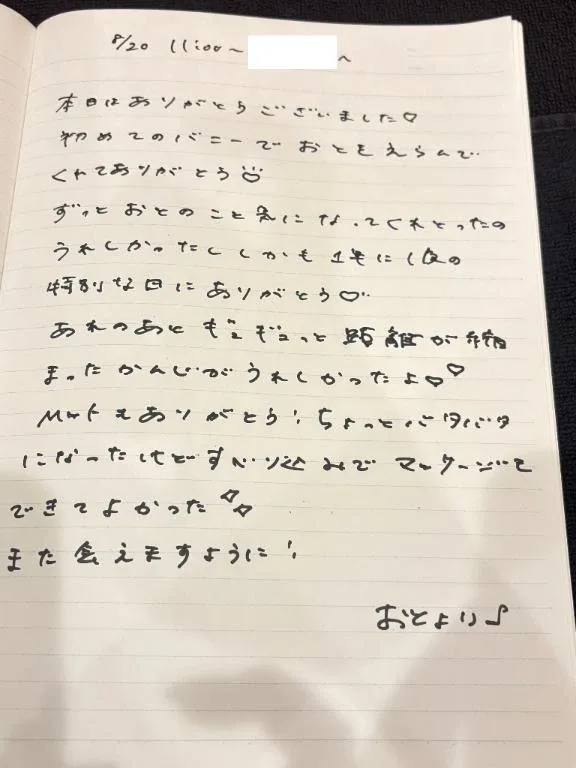 8/20 11:00〜 へ
本日はありがとうございました♡
初めてのバニーでおとをえらんで
くれてありがとう
ずっとおとのこと気になってくれとったの
うれしかったししかも1年に1度の
特別な日にありがとう♡
あれのあとギュギュっと距離が縮
まったかんじがうれしかったよ♡♡
Mットもありがとう！ちょっとバタバタ
になったけどすべり込みでマッサージも
できてよかった
また会えますように！
おとより♪